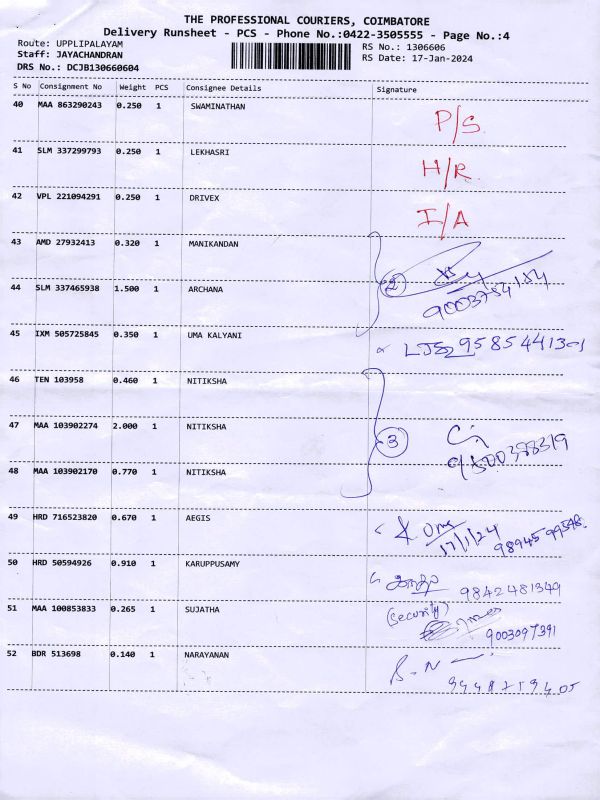 THE PROFESSIONAL COURIERS, COIMBATORE
Delivery Runsheet - PCS - Phone No.:0422-3505555 - Page No.:4
Route: UPPLIPALAYAM RS No.: 1306606
Staff: JAYACHANDRAN RS Date: 17-Jan-2024
DRS No.: DCJB130660604
S No Consignment No Weight PCS Consignee Details Signature
40 MAA 863290243 0.250 1 SWAMINATHAN P/S
41 SLM 337299793 0.250 1 LEKHASRI H/R
42 VPL 221094291 0.250 1 DRIVEX I/A
43 AMD 27932413 0.320 1 MANIKANDAN
44 SLM 337465938 1.500 1 ARCHANA 2
45 IXM 505725845 0.350 1 UMA KALYANI 9585441301
46 TEN 103958 0.460 1 NITIKSHA
47 MAA 103902274 2.000 1 NITIKSHA 3
48 MAA 103902170 0.770 1 NITIKSHA
49 HRD 716523820 0.670 1 AEGIS 17/1/24
50 HRD 50594926 0.910 1 KARUPPUSAMY 9842481349
51 MAA 100853833 0.265 1 SUJATHA (Security) 9003097391
52 BDR 513698 0.140 1 NARAYANAN